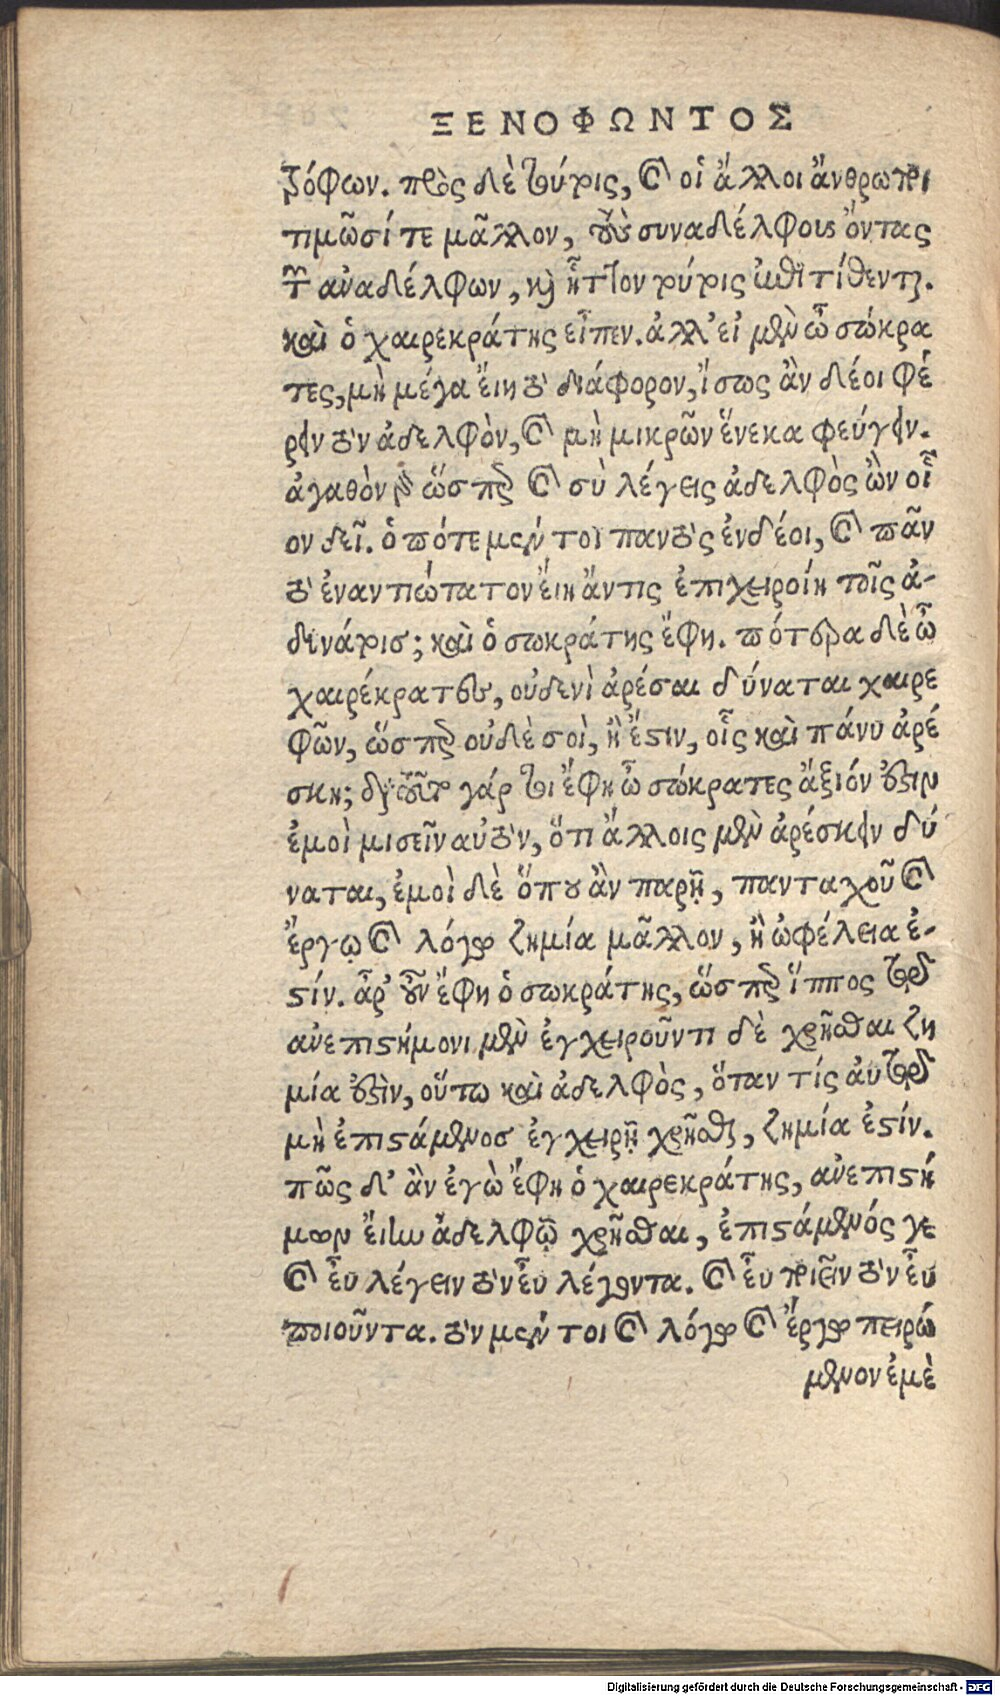 ΞΕΝΟΦΩΝΤΟΣ
τρόφων. πρὸς δὲ τούτοις, καὶ οἱ ἄλλοι ἄνθρωποι
τιμῶσί τε μᾶλλον, τοὺς συναδέλφους ὄντας
τῶν ἀναδέλφων, καὶ ἧττον τούτοις ἐπιτίθενται.
καὶ ὁ χαιρεκράτης εἶπεν. ἀλλ' εἰ μὲν ὦ σώκρα
τες, μὴ μέγα εἴη τὸ διάφορον, ἴσως ἂν δέοι φέ
ρειν τὸν ἀδελφὸν, καὶ μὴ μικρῶν ἕνεκα φεύγειν.
ἀγαθὸν γὰρ ὥσπερ καὶ σὺ λέγεις ἀδελφὸς ὢν οἷ
ον δεῖ. ὁπότε μέντοι παντὸς ἐνδέοι, καὶ πᾶν
τὸ ἐναντιώτατον εἴη ἄντις ἐπιχειροίη τοῖς ἀ-
δυνάτοις; καὶ ὁ σωκράτης ἔφη. πότερα δὲ ὦ
χαιρέκρατες, οὐδενὶ ἀρέσαι δύναται χαιρε
φῶν, ὥσπερ οὐδὲ σοὶ, ἢ ἔστιν, οἷς καὶ πάνυ ἀρέ
σκη; διὰ τοῦτο γάρ τοι ἔφη ὦ σώκρατες ἄξιόν ἐστιν
ἐμοὶ μισεῖν αὐτὸν, ὅτι ἄλλοις μὲν ἀρέσκειν δύ
ναται, ἐμοὶ δὲ ὅπου ἂν παρῇ, πανταχοῦ καὶ
ἔργῳ καὶ λόγῳ ζημία μᾶλλον, ἢ ὠφέλεια ἐ-
στίν. ἆρ' οὖν ἔφη ὁ σωκράτης, ὥσπερ ἵππος τῷ
ἀνεπιστήμονι μὲν ἐγχειροῦντι δὲ χρῆσθαι ζη
μία ἐστὶν, οὕτω καὶ ἀδελφὸς, ὅταν τίς αὐτῷ
μὴ ἐπιστάμενος ἐγχειρῇ χρῆσθαι, ζημία ἐστίν.
πῶς δ' ἂν ἐγὼ ἔφη ὁ χαιρεκράτης, ἀνεπιστή
μων εἴην ἀδελφῷ χρῆσθαι, ἐπιστάμενός γε
καὶ εὖ λέγειν τὸν εὖ λέγοντα. καὶ εὖ ποιεῖν τὸν εὖ
ποιοῦντα. τὸν μέντοι καὶ λόγῳ καὶ ἔργῳ πειρώ
μενον ἐμὲ
Digitalisierung gefördert durch die Deutsche Forschungsgemeinschaft - DFG